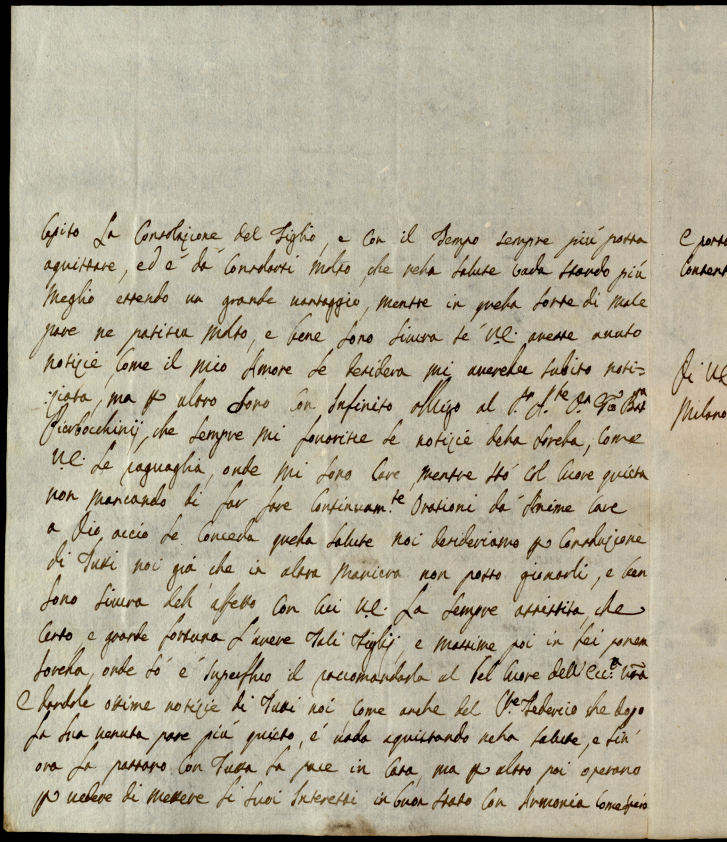 Capito La Consolazione del Figlio, e con il Tempo sempre più possa
aquistare, ed è dà Consolarsi molto, che nella salute vada stando più
Meglio essendo un grande vantaggio, mentre in quella sorte di male
pare ne patisca molto, e bene sono sicura se V.E. avesse avuto
notizie come il mio Amore le desidera mi averebe subito noti=
:ziata, ma p altro sono con Infinito obligo al
che sempre mi favorisce le notizie della sorella, come
V.E. le raguaglia, onde mi sono care mentre stò col Cuore quieta
non mancando di far fare Continuam.te Orationi dà Anime care
a Dio acciò le Conceda quella salute noi desideriamo p Consolazione
di Tutti noi già che in altra maniera non posso giovarli, e ben
sono sicura dell'affetto con cui V.E. La sempre assistita che
certo e grande fortuna l'avere Tali Figlij, e massime poi in lei
sorella, onde sò è superfluo il raccomandarla al bel Cuore dell'Ecc.a Vra
e darle ottime notizie di Tutti noi come anche del Federico che dopo
La sua venuta pare più quieto, è vada aquistando nella salute, e sin'
ora La passano con Tutta La pace in Casa, ma p altro poi operano
p vedere di mettere li suoi Interessi in buon stato con Armonia come spero
e possa
Di V.E.
Milano